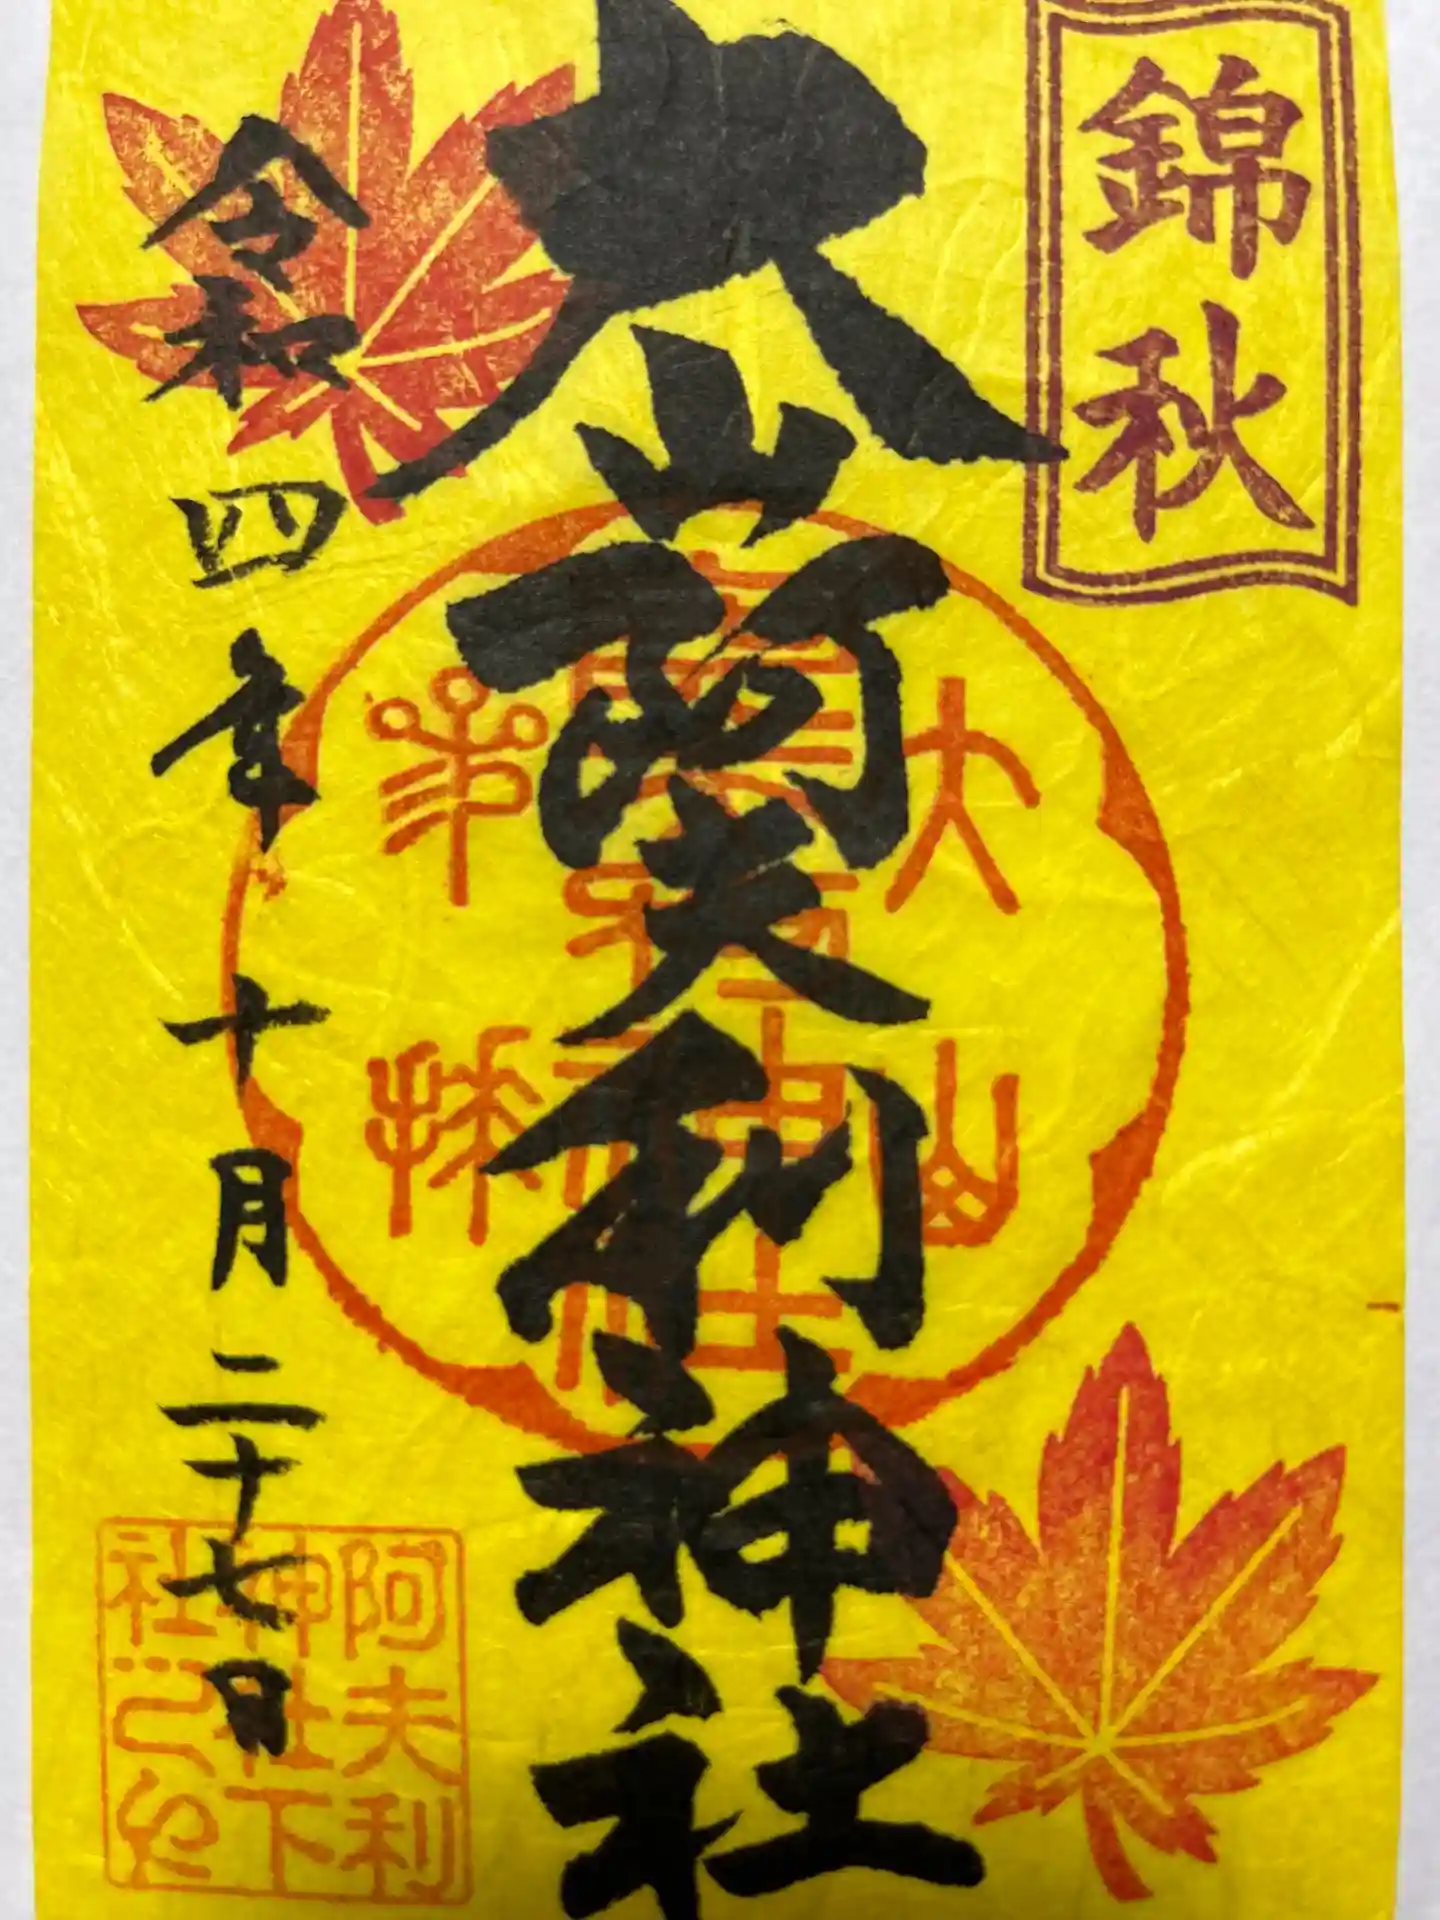 錦秋
大山阿夫利神社
令和四年十月二十七日
大山
本社
阿夫利
神社下
社之印